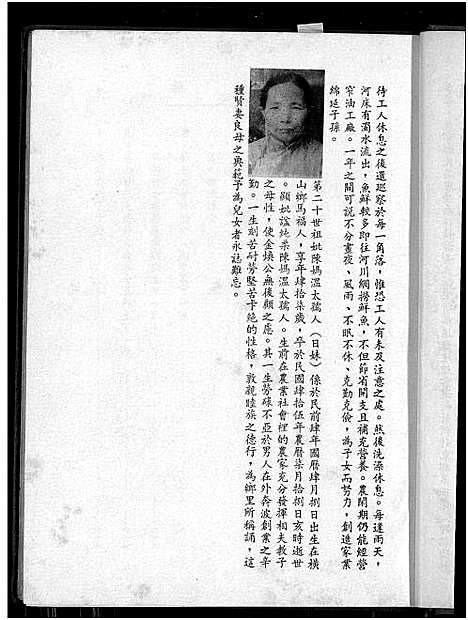 待工人休息之後還巡察於每一角落，惟恐工人有未及注意之處。然後洗澡休息。每逢雨天，
河床有濁水流出，魚鮮較多即往河川網撈鮮魚，不但節省開支且補充營養。農閑期仍能經營
窄油工廠。一年之間可說不分晝夜、風雨、不眠不休、克勤克儉，為子女而努力，創造家業
綿延子孫。
第二十世祖妣陳媽溫太孺人（日妹）係於民前肆年國曆肆月捌日出生在橫
山鄉馬福人，享年肆拾柒歲，卒於民國肆拾伍年農曆柒月拾捌日亥時逝世
。顯妣諡純柔陳媽溫太孺人。生前在農業社會裡的農家充分發揮相夫教子
之母性，使金燒公無後顧之慮。其一生勞碌不亞於男人在外奔波創業之辛
勤。一生刻苦耐勞堅苦卡絕的性格，敦親睦族之德行，為鄉里所稱誦，這
種賢妻良母之典範予為兒女者永誌難忘。